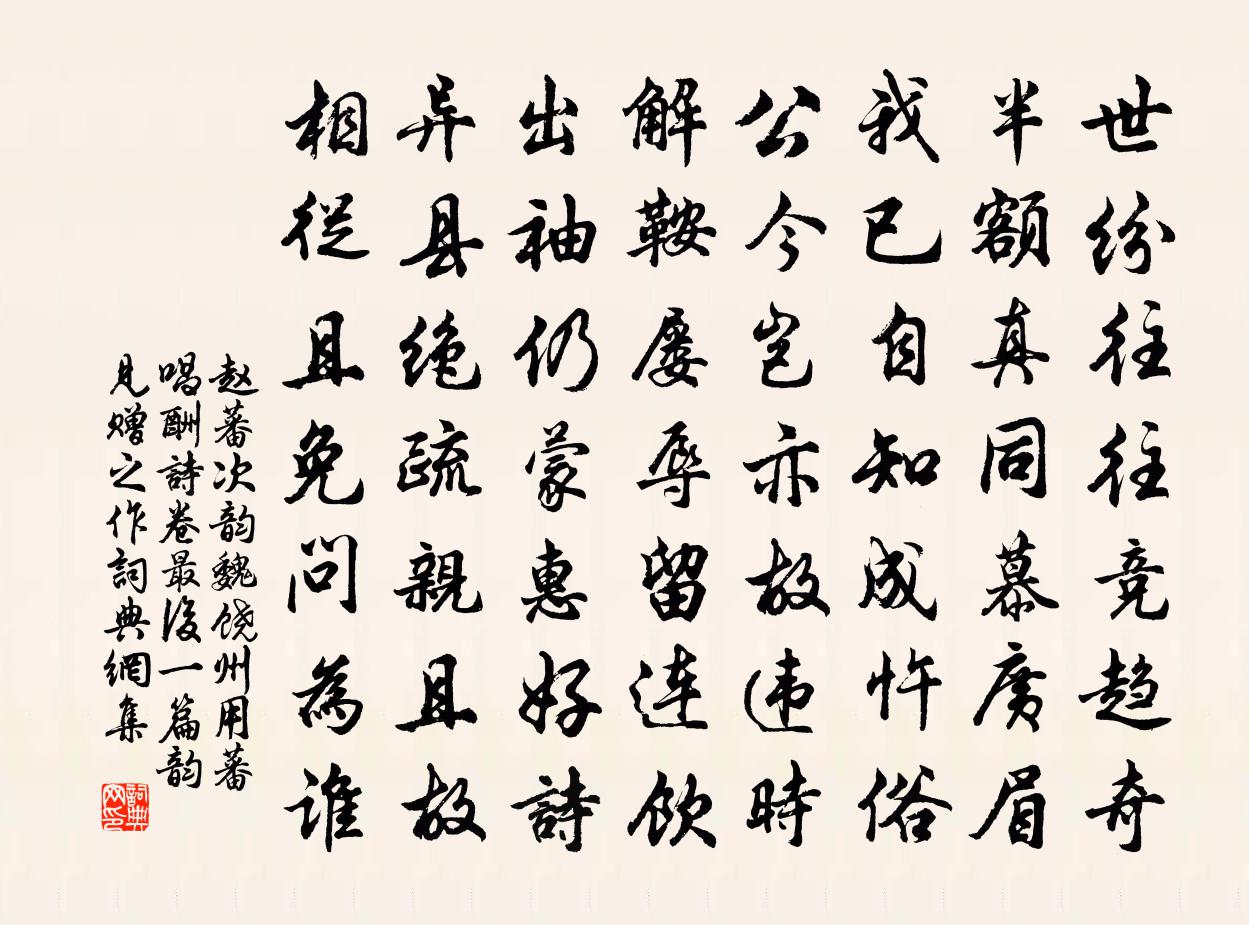 世纷往往竞趋奇
半额真同慕广眉
我已自知成忤俗
公今岂亦故违時
解鞍屡辱留连饮
出袖仍蒙惠好詩
异县绝疏親且故
相従且免问為谁
赵蕃次韵魏饶州用蕃
唱酬詩卷最後一篇韵
見赠之作詞典網集
詞典
网印